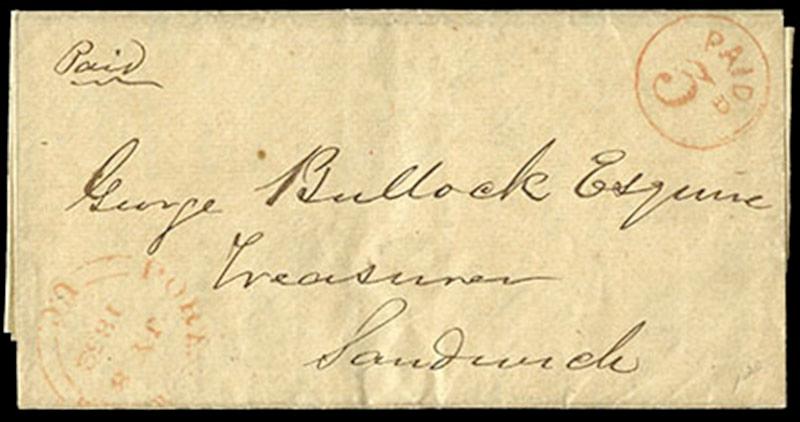 Paid
PAID
3
George Bullock Esquire
Treasurer
Sandwich